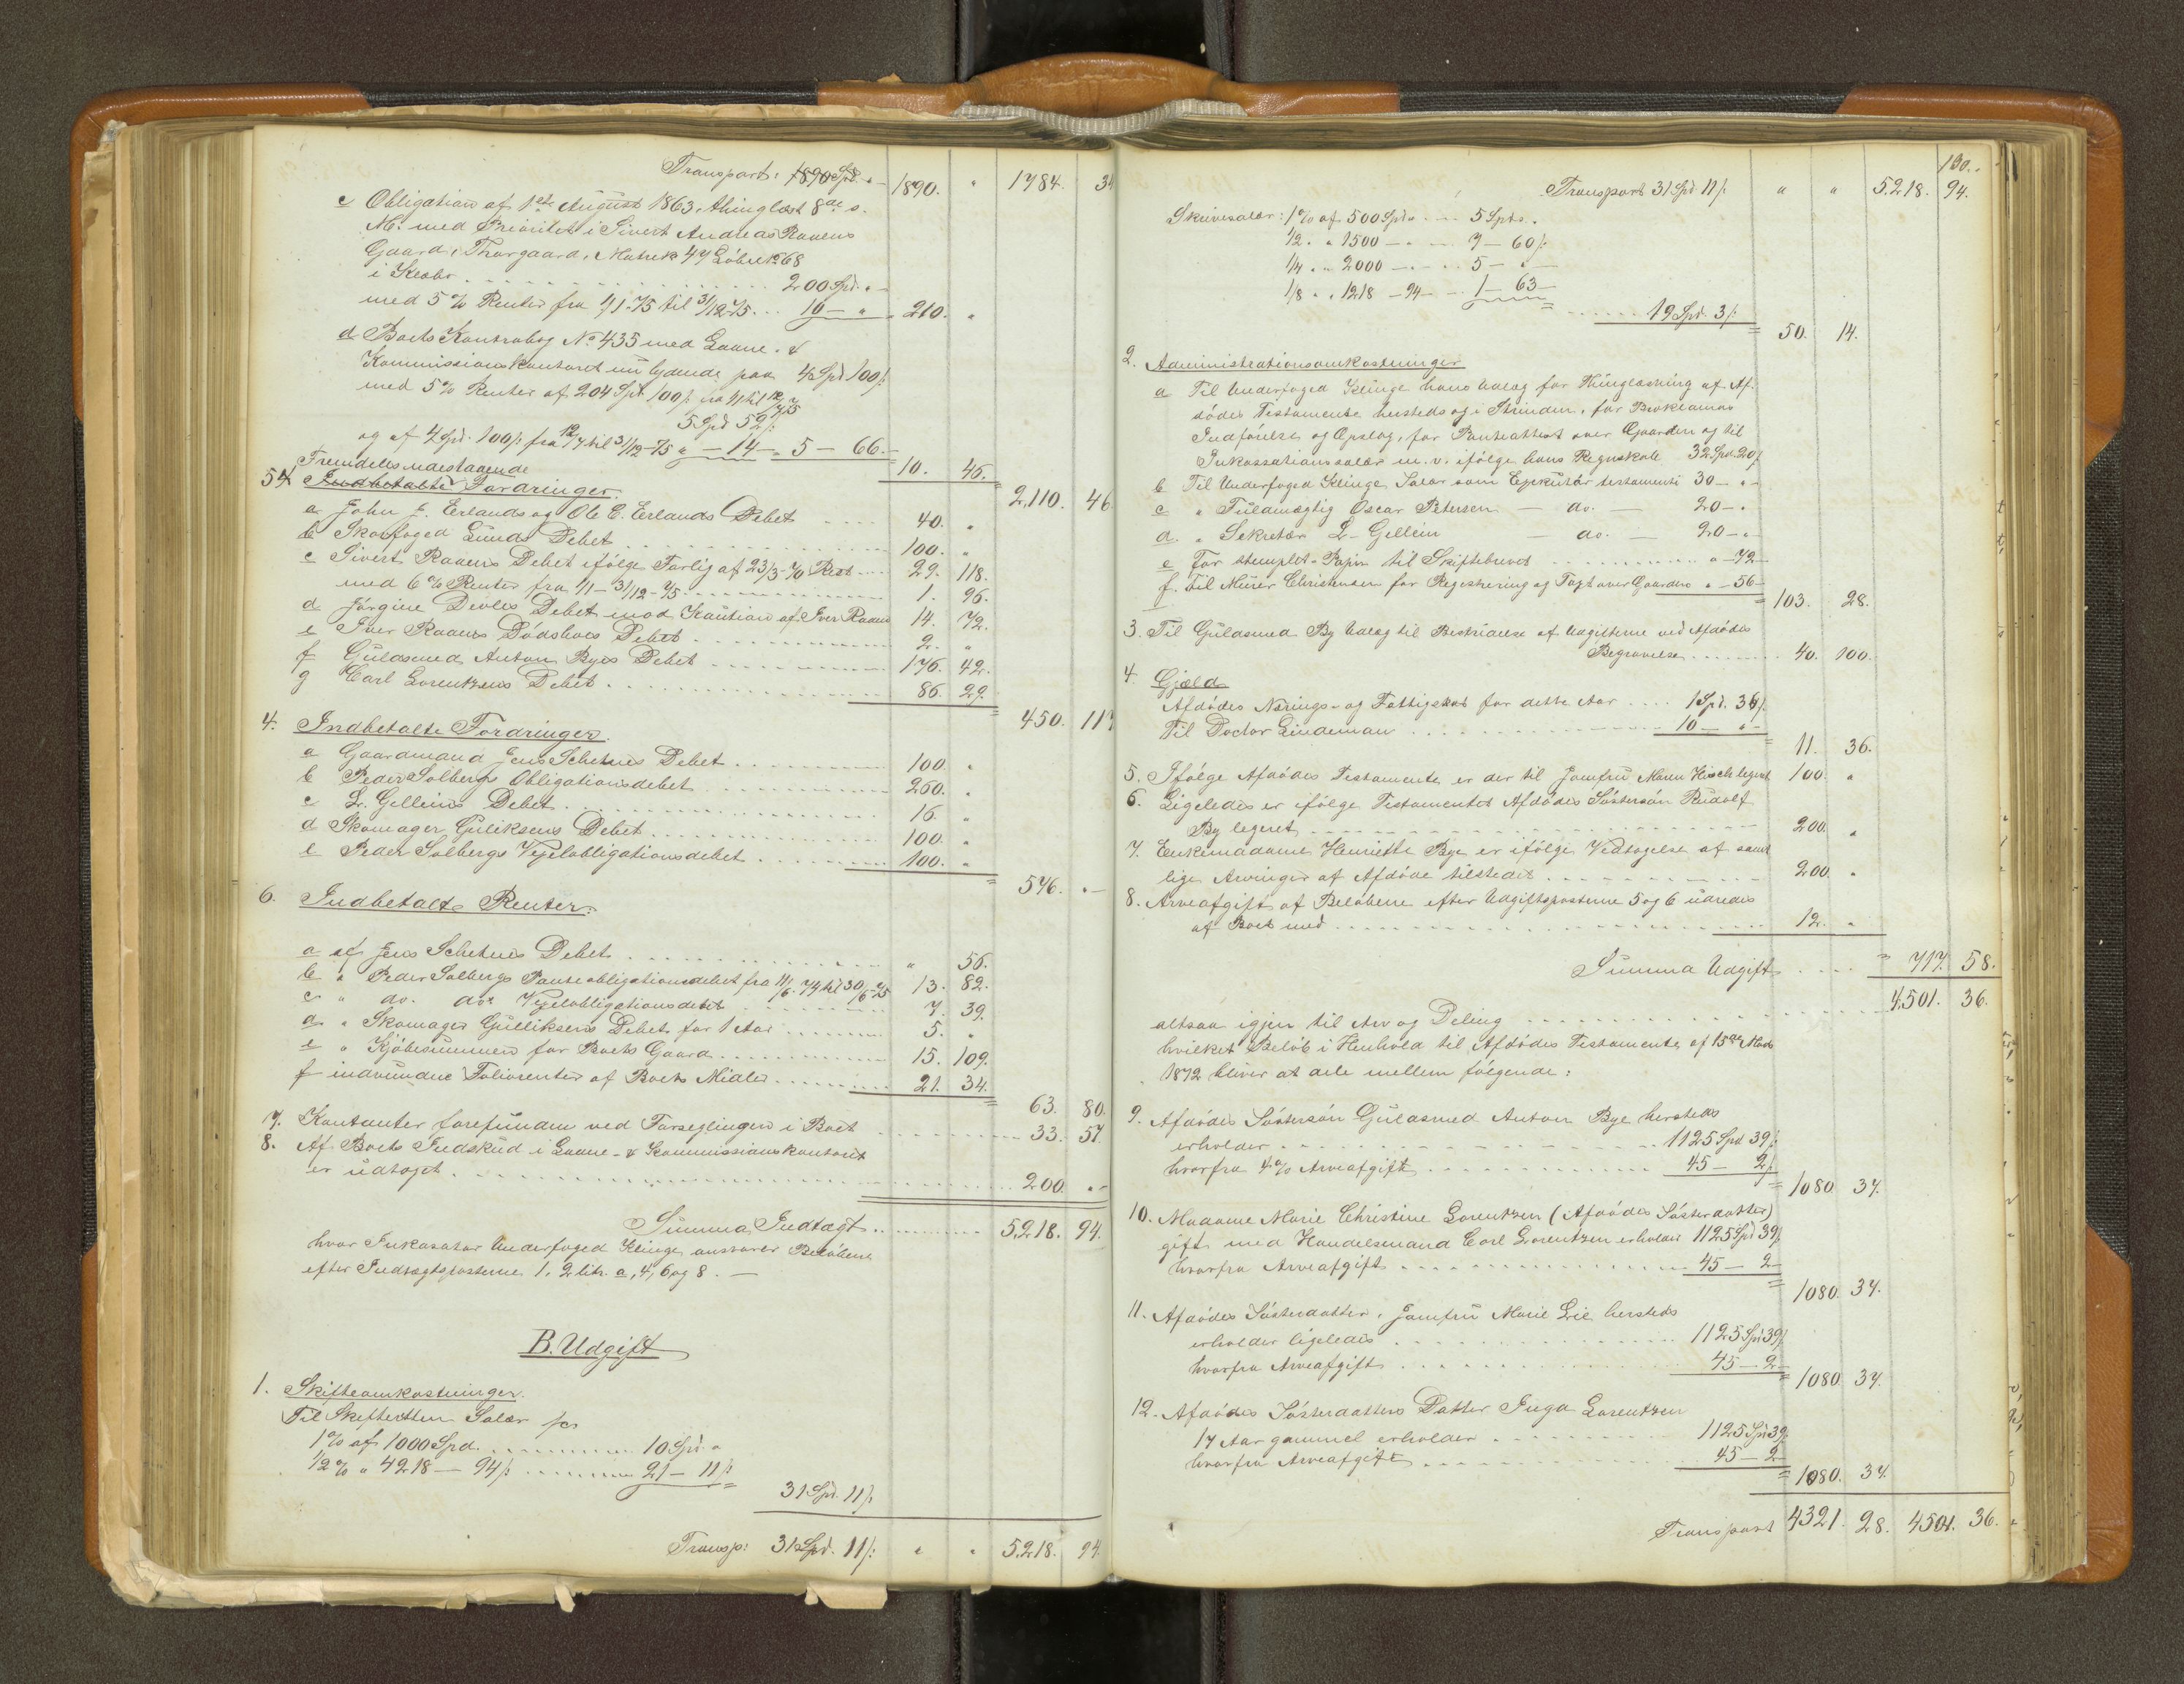 Transport: 1890 Spd. " 1890. " 1784. 34
c Obligation af 1ste August 1863, thinglæst 8de s.
M. med Prioritet i Sivert Andreas Raaens
Gaard, Thorgaard, Matrek 47 Löbn. 68
i Klæbo 200 Spd. " -
med 5 % Renter fra 1/1-75 til 31/12-75 10 - " 210. "
d Boets Kontrabog No 435 med Laane- &
Kommissionskontoret nu lydende paa 4 Spd 100 /:
med 5 % Renter af 204 Spd 100 /: fra 1/1 til 12/7 75
5 Spd 52 /:
og af 4 Spd. 100 /: fra 12/7 til 31/12-75 " - 14 - 5 - 66. -
10. 46.
2,110. 46
Fremdeles udestaaende
5 Indbetalte Fordringer.
a John J. Erlands og Ole E. Erlands Debet 40. "
b Skovfoged Lunds Debet 100. "
c Sivert Raaens Debet ifölge Forlig af 23/3-70 Rest 29. 118.
med 6 % Renter fra 1/1 - 31/12-75 1. 96.
d Jörgine Devles Debet mod Kaution af Iver Raaen 14. 72.
e Iver Raaens Dödsboes Debet 2. "
f Guldsmed Anton Byes Debet 176. 42.
g Carl Lorentzens Debet 86. 29.
450. 117
4. Indbetalte Fordringer.
a Gaardmand Jens Schetnes Debet 100. "
b Peder Solbergs Obligationsdebet 260. "
c L. Gelleins Debet 16. "
d Skomager Guliksens Debet 100. "
e Peder Solbergs Vexelobligationsdebet 100. "
576. " -
6. Indbetalte Renter:
a af Jens Schetnes Debet " 56.
b " Peder Solbergs Panteobligationsdebet fra 11/6 74 til 30/6-75 13. 82.
c " do. dos Vexelobligationsdebet 7. 39.
d " Skomager Gulliksens Debet for 1 Aar 5. "
e " Kjöbesummen for Boets Gaard 15. 109.
f indvundne Foliorenter af Boets Midler 21. 34.
63. 80.
7. Kontanter forefunden ved Forseglingen i Boet 33. 57.
8. Af Boets Indskud i Laane- & Kommissionskontoret
er udtaget 200. " -
Summa Indtægt 5,218. 94.
hvor Inkasator Underfoged Klinge ansvarer Beløbene
efter Indtægtsposterne 1, 2 litr. a, 4, 6 og 8. -
B. Udgift
1. Skifteomkostninger.
Til Skifteretten Salær
1 % af 1000 Spd. 10 Spd. "
1/2 % " 4218 - 94 /: 21 - 11 /:
31 Spd. 11 /:
Transp: 31 Spd. 11 /: " " 5,218. 94.
130.
Transport 31 Spd 11 /: " " 5,218. 94.
Skriversalær: 1 % af 500 Spd. 5 Spd.
1/2 " " 1500 - " 7 - 60 /:
1/4 " " 2000 - " 5 - " -
1/8 " " 1218 - 94 - 1 - 63 -
19 Spd. 3 /:
50. 14.
2. Administrationsomkostninger
a Til Underfoged Klinge hans Udlæg for Thinglæsning af Af-
dödes Testamente hersteds og i Strinden, for Proklamas
Indförelse og Opslag, for Panteattest over Gaarden og til
Inkassationssalær m. v. ifölge hans Regnskab 32 Spd. 20 /:
b Til Underfoged Klinge Salær som Exekutor testamenti 30 - " -
c " Fuldmægtig Oscar Petersen - do. - 20 - "
d " Sekretær L. Gellein - do. - 20 - " -
e For stemplet Papir til Skiftebrevet " - 72 -
f. Til Murer Christensen for Registrering og Taxt over Gaarden " - 56 -
103. 28.
3. Til Guldsmed By Udlæg til Bestridelse af Udgifterne ved Afdödes
Begravelse 40. 100.
4. Gjæld
Afdödes Nærings- og Fattigskat for dette Aar 1 Spd. 36 /:
Til Doctor Lindeman 10 - " -
11. 36.
5. Ifölge Afdödes Testamente er der til Jomfru Maren Hirsch legeret 100. "
6. Ligeledes er ifölge Testamentet Afdödes Söstersön Rudolf
By legeret 200. "
7. Enkemadame Henriette Bye er ifölge Vedtagelse af samt
lige Arvinger af Afdöde tilstedt 200. "
8. Arveafgift af Beløbene efter Udgiftsposterne 5 og 6 udredes
af Boet med 12. "
Summa Udgift 717. 58.
4,501. 36.
altsaa igjen til Arv og Deling
hvilket Beløb i Henhold til Afdödes Testamente af 15de Mods
1872 bliver at dele mellem følgende:
9. Afdödes Söstersön Guldsmed Anton Bye hersteds
erholder 1125 Spd 39 /:
hvorfra 4 % Arveafgift 45 - 2 /:
1080. 37.
10. Madame Marie Christine Lorentzen (Afdödes Sösterdatter)
gift med Handelsmand Carl Lorentzen erholder 1125 Spd 39 /:
hvorfra Arveafgift 45 - 2 -
1080. 37.
11. Afdödes Sösterdatter, Jomfru Marie Lie hersteds
erholder ligeledes 1125 Spd 39 /:
hvorfra Arveafgift 45 - 2 -
1080. 37.
12. Afdödes Sösterdatters Datter Inga Lorentzen
17 Aar gammel erholder 1125 Spd 39 /:
hvorfra Arveafgift 45 - 2 -
1080. 37.
Transport 4321. 28. 4501. 36.